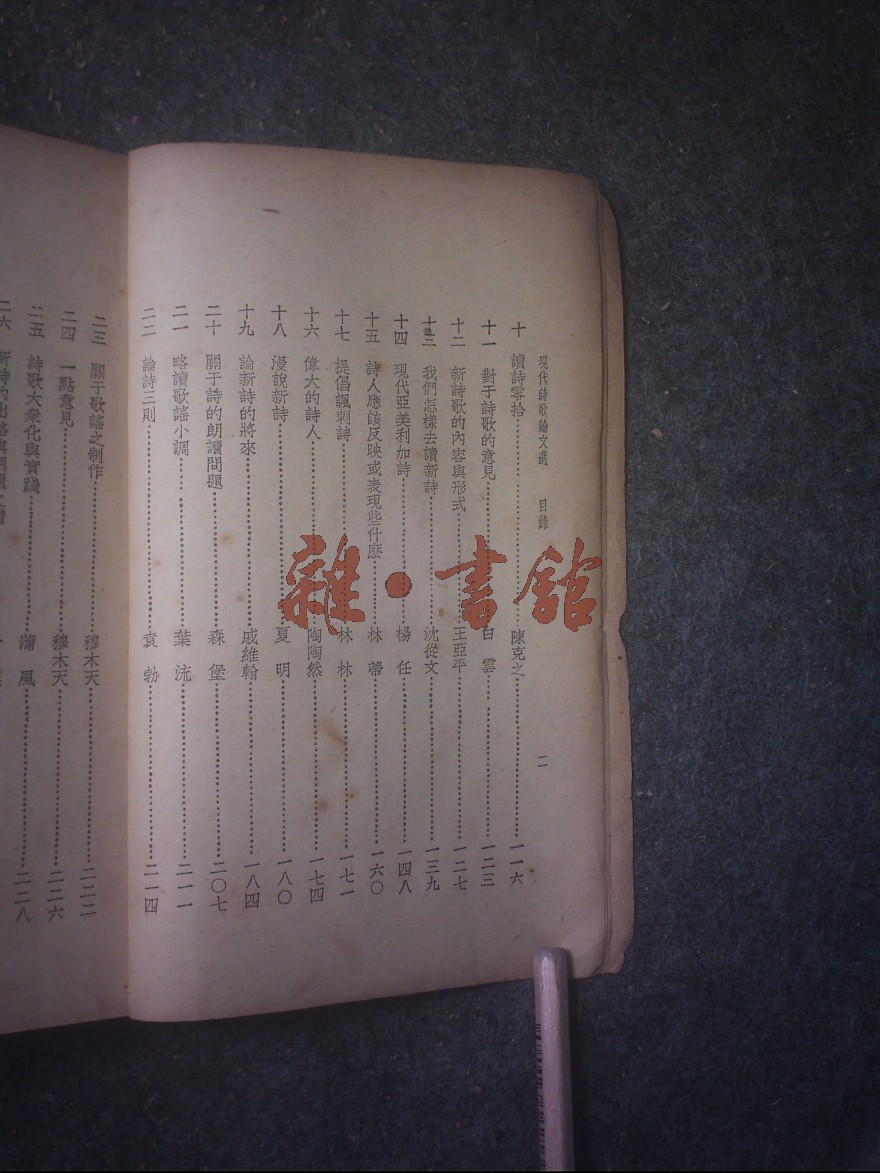 現代詩歌論文選 目錄 二
十 讀詩零拾 陳克之 一一六
十一 對于詩歌的意見 白雲 一二三
十二 新詩歌的內容與形式 王亞平 一二七
十三 我們怎樣去讀新詩 沈從文 一三九
十四 現代亞美利加詩 楊任 一四八
十五 詩人應該反映或表現些什麽 林蒂 一六〇
十七 提倡諷刺詩 林林 一七一
十六 偉大的詩人 陶陶然 一七四
十八 漫說新詩 夏明 一八〇
十九 論新詩的將來 戚維翰 一八四
二十 關于詩的朗讀問題 森堡 二〇七
二一 略讀歌謠小調 葉流 二一一
二二 論詩三則 袁勃 二一四
二三 關于歌謠之制作 穆木天 二二二
二四 一點意見 穆木天 二二六
二五 詩歌大衆化與實踐 蒲風 二二八
二六 新詩的出路與
雜·書館